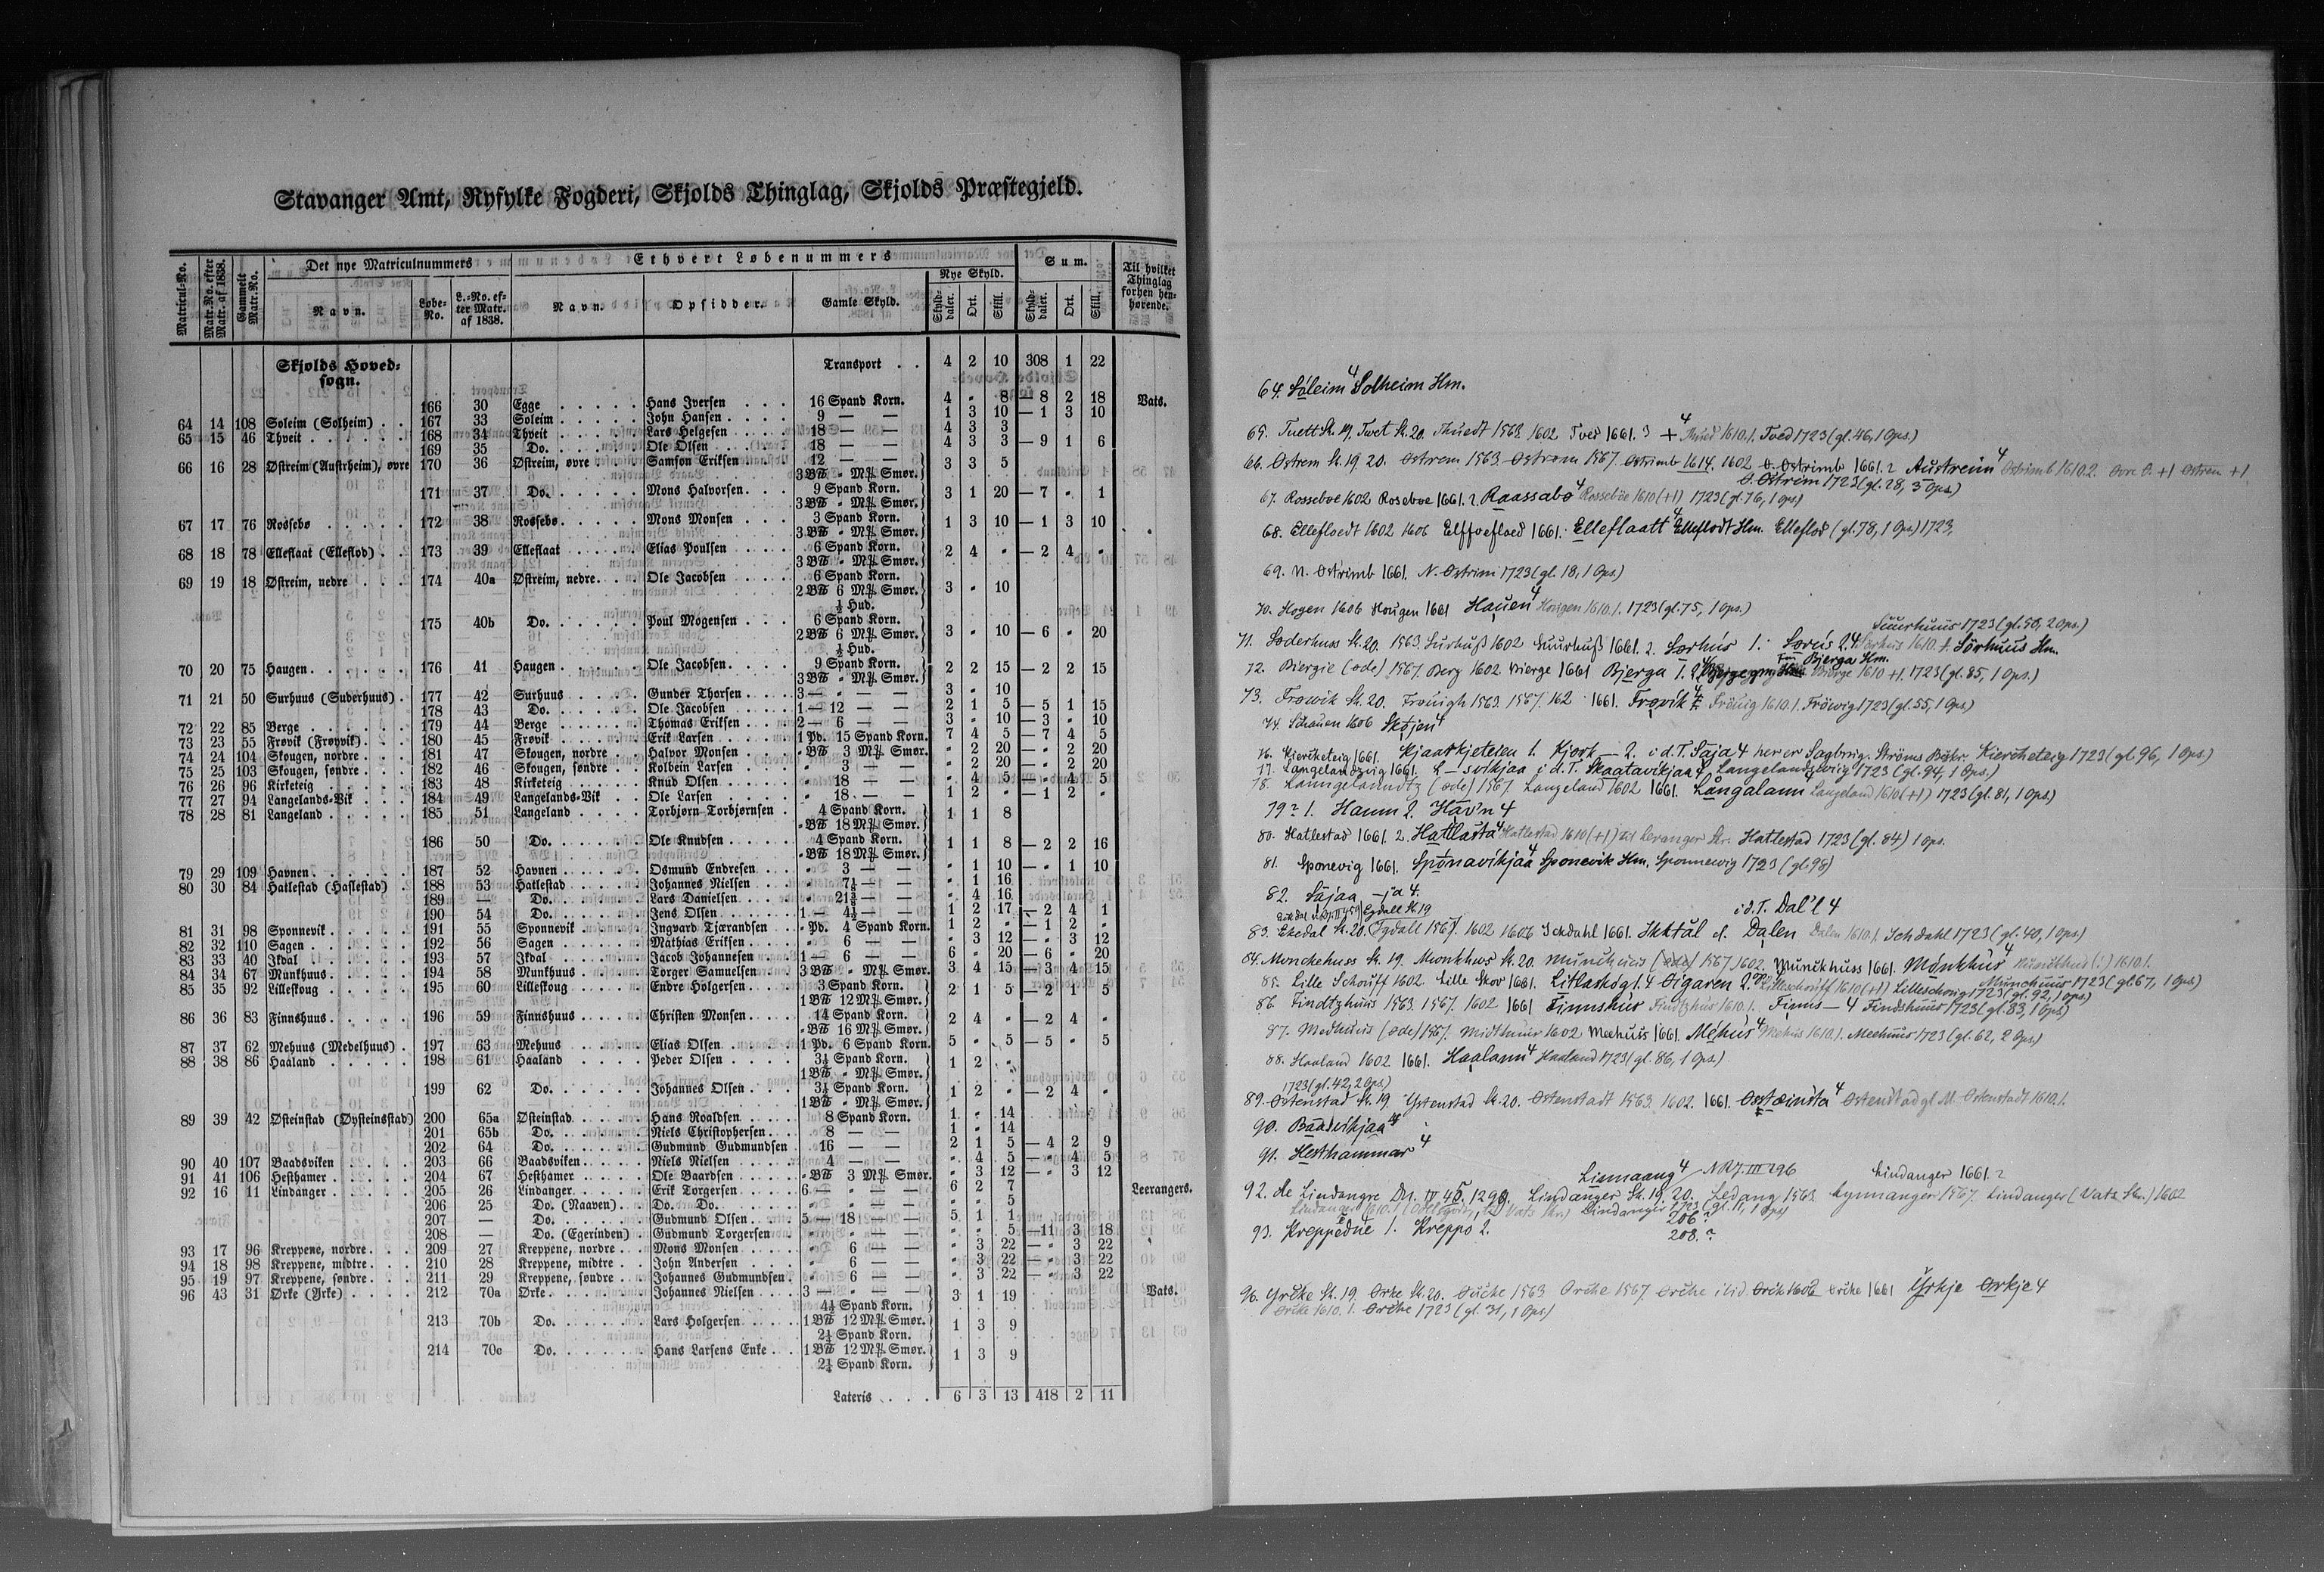 Stavanger Amt, Ryfylke Fogderi, Skjolds Thinglag, Skjolds Præstegjeld.
Matricul-No. Matr.-No. efter Matr. af 1838. Gammelt Matr.-No. Det nye Matriculnummers Ethvert Løbenummers Sum. Til hvilket Thinglag forhen henhørende.
Navn. Løbe-No. L.-No. efter Matr. af 1838. Navn. Opsidder. Gamle Skyld. Nye Skyld. Skylddaler. Ort. Skill. Skylddaler. Ort. Skill.
Skjolds Hovedsogn. Transport . . 4 2 10 308 1 22
166 30 Egge Hans Iversen 16 Spand Korn. 4 " 8 — 8 2 18 Vats.
64 14 108 Soleim (Solheim) 167 33 Soleim John Hansen 9 — — 1 3 10 — 1 3 10
65 15 46 Thveit 168 34 Thveit Lars Helgesen 18 — — 4 3 3
169 35 Do. Ole Olsen 18 — — 4 3 3 — 9 1 6
66 16 28 Østreim (Austrheim), øvre 170 36 Østreim, øvre Samson Eriksen 12 — — 3 3 5
3 B℔ " M℔ Smør.
171 37 Do. Mons Halvorsen 9 Spand Korn. 3 1 20 — 7 " 1
3 B℔ " M℔ Smør.
67 17 76 Rossebø 172 38 Rossebø Mons Monsen 3 Spand Korn. 1 3 10 — 1 3 10
3 B℔ " M℔ Smør.
68 18 78 Elleflaat (Elleflod) 173 39 Elleflaat Elias Poulsen 6 Spand Korn. 2 4 " — 2 4 "
3 B℔ " M℔ Smør.
69 19 18 Østreim, nedre 174 40a Østreim, nedre Ole Jacobsen 6 Spand Korn. 3 " 10
2 B℔ 6 M℔ Smør.
½ Hud.
175 40b Do. Poul Mogensen 6 Spand Korn. 3 " 10 — 6 " 20
2 B℔ 6 M℔ Smør.
½ Hud.
70 20 75 Haugen 176 41 Haugen Ole Jacobsen 9 Spand Korn. 2 2 15 — 2 2 15
3 B℔ " M℔ Smør.
71 21 50 Surhuus (Suderhuus) 177 42 Surhuus Gunder Thorsen 3 — " — — 3 " 10
178 43 Do. Ole Jacobsen 1 — 12 — — 2 1 5 — 5 1 15
72 22 85 Berge 179 44 Berge Thomas Eriksen 2 — 6 — — 3 " 10 — 3 " 10
73 23 55 Frøvik (Frøyvik) 180 45 Frøvik Erik Larsen 1 Pd. 15 Spand Korn. 7 4 5 — 7 4 5
74 24 104 Skougen, nordre 181 47 Skougen, nordre Halvor Monsen " B℔ 3 M℔ Smør. " 2 20 — " 2 20
75 25 103 Skougen, søndre 182 46 Skougen, søndre Kolbein Larsen " 3 — — " 2 20 — " 2 20
76 26 96 Kirketeig 183 48 Kirketeig Knud Olsen " 18 — — " 4 5 — " 4 5
77 27 94 Langelands-Vik 184 49 Langelands-Vik Ole Larsen " 18 — — 1 2 " — 1 2 "
78 28 81 Langeland 185 51 Langeland Torbjørn Torbjørnsen 4 Spand Korn. 1 1 8
" B℔ 18 M℔ Smør.
186 50 Do. Ole Knudsen 4 Spand Korn. 1 1 8 — 2 2 16
" B℔ 18 M℔ Smør.
79 29 109 Havnen 187 52 Havnen Osmund Endresen " 3 — — " 1 10 — " 1 10
80 30 84 Hatlestad (Haslestad) 188 53 Hatlestad Johannes Nielsen " 7½ — — " 1 16
189 — Do. Lars Danielsen " 21¾ — — " 4 16
190 54 Do. Jens Olsen 1 — 4½ — — 1 2 17 — 2 4 1
81 31 98 Sponnevik 191 55 Sponnevik Ingvard Tjærandsen " Pd. 4 Spand Korn. 1 2 " — 1 2 "
82 32 110 Sagen 192 56 Sagen Mathias Eriksen " 6 — — " 3 12 — " 3 12
83 33 40 Ikdal 193 57 Ikdal Jacob Johannesen 1 — 6 — — 6 " 20 — 6 " 20
84 34 67 Munkhuus 194 58 Munkhuus Torger Samuelsen 3 B℔ " M℔ Smør. 3 4 15 — 3 4 15
85 35 92 Lilleskoug 195 60 Lilleskoug Endre Holgersen 3 Spand Korn. 2 1 5 — 2 1 5
1 B℔ 12 M℔ Smør.
86 36 83 Finnshuus 196 59 Finnshuus Christen Monsen 14 Spand Korn. 2 4 " — 2 4 "
" B℔ 16 M℔ Smør.
87 37 62 Mehuus (Medelhuus) 197 63 Mehuus Elias Olsen 1 Pd. 6 Spand Korn. 5 " 5 — 5 " 5
88 38 86 Haaland 198 61 Haaland Peder Olsen 3½ Spand Korn. 1 2 "
1 B℔ " M℔ Smør.
199 62 Do. Johannes Olsen 3½ Spand Korn. 1 2 " — 2 4 "
1 B℔ " M℔ Smør.
89 39 42 Østeinstad (Øysteinsstad) 200 65a Østeinstad Hans Roaldsen 8 Spand Korn. 1 " 14
201 65b Do. Niels Christophersen 8 — — 1 " 14
202 64 Do. Gudmund Gudmundsen 16 — — 2 1 5 — 4 2 9
90 40 107 Baadsviken 203 66 Baadsviken Niels Nielsen 4 — — " 4 5 — " 4 5
91 41 106 Hesthamer 204 67 Hesthamer Ole Baardsen " B℔ 3 M℔ Smør. " 3 12 — " 3 12
92 16 11 Lindanger 205 26 Lindanger Erik Torgersen 6 — " — — 6 2 7 Leerangers.
206 25 Do. (Naaven) Do. Do. " " — — " " 5
207 — Do. Gudmund Olsen 5 — 18 — — 5 1 1
208 — Do. (Egerinden) Gudmund Torgersen " " — — " " 5 — 11 3 18
93 17 96 Kreppene, nordre 209 27 Kreppene, nordre Mons Monsen " 6 — — " 3 22 — " 3 22
94 18 98 Kreppene, midtre 210 28 Kreppene, midtre John Andersen " 6 — — " 3 22 — " 3 22
95 19 97 Kreppene, søndre 211 29 Kreppene, søndre Johannes Gudmundsen " 6 — — " 3 22 — " 3 22
96 43 31 Ørke (Yrke) 212 70a Ørke Johannes Nielsen 3 — " — — 3 1 19 Vats.
4½ Spand Korn.
213 70b Do. Lars Holgersen 1 B℔ 12 M℔ Smør. 1 3 9
2¼ Spand Korn.
214 70c Do. Hans Larsens Enke 1 B℔ 12 M℔ Smør. 1 3 9
2¼ Spand Korn.
Lateris . . . 6 3 13 418 2 11
64. Søleim 4 Solheim Hm.
65. Tuett St. 19. Twet St. 20. Thuedt 1563. 1602 Tved 1661. 3 + 4 Thued 1610.1. Tved 1723 (gl. 46, 1 Ops.)
66. Østrem St. 19 20. Østrem 1563. Østrom 1567. Østrimb 1614. 1602 O. Østrimb 1661. 2 Austreim 4 Østrimb 1610.2. Øvre O. +1 Østrem +1
O. Østrem 1723 (gl. 28, 3 Ops.)
67. Rosseboe 1602 Roseboe 1661. 2. Raassabø 4 Rossebøe 1610 (+1) 1723 (gl. 76, 1 Ops)
68. Ellefloedt 1602 1606 Elffvefloed 1661. Elleflaatt 4 Elleflodt Hm. Elleflod (gl. 78, 1 Ops) 1723.
69. N. Østrimb 1661. N. Østrim 1723 (gl. 18, 1 Ops.)
70. Hogen 1606 Hougen 1661 Hauen 4 Hougen 1610.1. 1723 (gl. 75, 1 Ops.)
Suurhuus 1723 (gl. 50, 2 Ops.)
71. Soderhuss St. 20. 1563. Surhuß 1602 Suurhuß 1661. 2. Sørhus 1. Sørus 2. 4 Sørhus 1610.1. Sörhuus Hm.
Bjerga Hm.
72. Biergie (øde) 1567. Berg 1602 Bierge 1661 Bjerga 1. 2 Bierge 1610 +1. 1723 (gl. 85, 1 Ops.)
73. Frowik St. 20. Frouigh 1563. 1567. 162 1661. Frøvik 4 Fröuig 1610.1. Fröwig 1723 (gl. 55, 1 Ops)
74. Schauen 1606 Skøjen 4
76. Kiercketeig 1661. Kjaarkjeteien 1. Kjørk — 2. i d. T. Saja 4 her er Sagbrug. Strøms Beskr. Kiercheteig 1723 (gl. 96, 1 Ops.)
77. Langelandzuig 1661. L — svikjaa i d. T. Skaatavikjaa 4. Langelandzwiig 1723 (gl. 94, 1 Ops.)
78. Lanngelanndtz (øde) 1567. Langeland 1602 1661. Långalann 4 Langeland 1610 (+1) 1723 (gl. 81, 1 Ops)
79? 1. Hamn 2. Hav'n 4
80. Hatlestad 1661. 2. Hattlasta 4 Hatlestad 1610 (+1) til Leranger Skr. Hatlestad 1723 (gl. 84) 1 Ops.
81. Sponevig 1661. Sponavikjaa 4 Sponevik Hm. Sponnewig 1723 (gl. 98)
82. Sajaa — ja 4.
i d. T. Dal'l 4
Egdall St. 19
83. Ekedal St. 20. Egdall 1567. 1602 1606 Ickdahl 1661. Ikktal el. Dalen Dalen 1610.1. Ickdahl 1723 (gl. 40, 1 Ops.)
84. Monckehuss St. 19. Monkhws St. 20. (øde) 1567 1602. Munkhuss 1661. Mønkhus 4 1610.1.
Munchuus 1723 (gl. 67, 1 Ops)
85. Lille Schouff 1602. Lille Skov 1661. Litlaskøg 1. 4 Øigaren 2. Lilleschouff 1610 (+1) Lilleschoug 1723 (gl. 92, 1 Ops.)
86. Findtzhuus 1563. 1567. 1602 1661 Finnshus Findtzhus 1610.1. Finns — 4 Findshuus 1723 (gl. 83, 1 Ops)
87. Medhuus (øde) 1567. Midthuus 1602 Meehuiss 1661. Mehus 4 Meehus 1610.1. Meehuus 1723 (gl. 62, 2 Ops)
88. Haaland 1602 1661. Haalann 4 Haaland 1723 (gl. 86, 1 Ops.)
1723 (gl. 42, 2 Ops.)
89. Østenstad St. 19 Ystenstad St. 20. Østenstadt 1563. 1602. 1661. Østæinsta 4 Østenstad gl. M. Østenstadt 1610.1.
90. Baadsvikjaa 4
91. Hesthammar 4
Linnaang 4 NRJ. III 296 Lindanger 1661. 2
92. de Lindangre Dn. IV 45. 1299. Lindanger St. 19. 20. Ledang 1563. Lynnanger 1567. Lindanger (Vats Sk.) 1602
Lindanger 1723 (gl. 11, 1 Ops)
206?
93. Kreppedne 1. Kreppo 2. 208.?
96. Yrcke St. 19. Ørke St. 20. 1563 Orche 1567. Ørche ibid. Ørck 1606 Ørcke 1661 Yrkje Ørkje 4
Ørcke 1610.1. Ørche 1723 (gl. 31, 1 Ops)